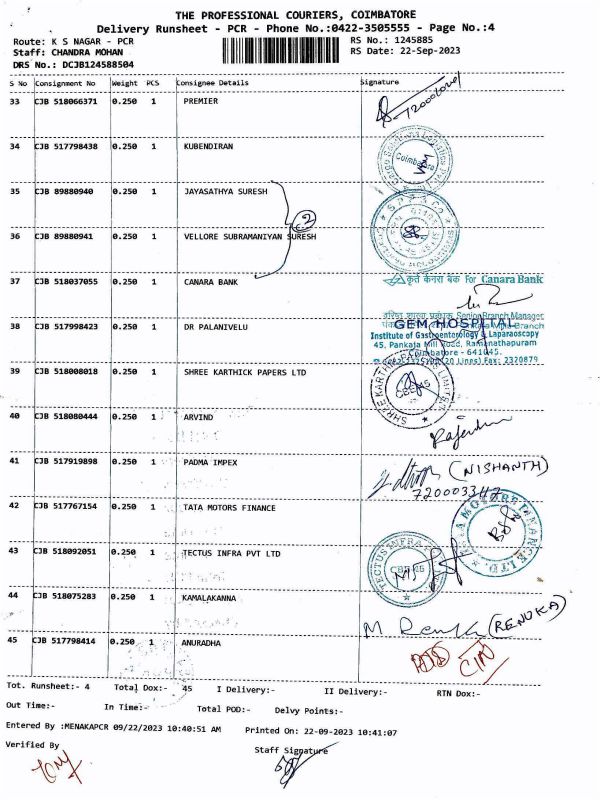 THE PROFESSIONAL COURIERS, COIMBATORE
Delivery Runsheet - PCR - Phone No.:0422-3505555 - Page No.:4
Route: K S NAGAR - PCR
RS No.: 1245885
Staff: CHANDRA MOHAN
RS Date: 22-Sep-2023
DRS No.: DCJB124588504
S No Consignment No Weight PCS Consignee Details Signature
33 CJB 518066371 0.250 1 PREMIER
34 CJB 517798438 0.250 1 KUBENDIRAN
Coimbatore
35 CJB 89880940 0.250 1 JAYASATHYA SURESH
2
36 CJB 89880941 0.250 1 VELLORE SUBRAMANIYAN SURESH
37 CJB 518037055 0.250 1 CANARA BANK
कृते केनरा बैंक For Canara Bank
Senior Branch Manager
Branch
38 CJB 517998423 0.250 1 DR PALANIVELU
GEM HOSPITAL
Institute of Gastroenterology & Laparaoscopy
45, Pankaja Mill Road, Ramanathapuram
Coimbatore - 641045.
Lines) Fax: 2320879
39 CJB 518008018 0.250 1 SHREE KARTHICK PAPERS LTD
SHREE KARTHICK PAPERS LIMITED
CBE-45
40 CJB 518080444 0.250 1 ARVIND
41 CJB 517919898 0.250 1 PADMA IMPEX
(NISHANTH)
42 CJB 517767154 0.250 1 TATA MOTORS FINANCE
TATA MOTORS FINANCE LTD.
43 CJB 518092051 0.250 1 TECTUS INFRA PVT LTD
TECTUS INFRA
44 CJB 518075283 0.250 1 KAMALAKANNA
M Renuka (RENUKA)
45 CJB 517798414 0.250 1 ANURADHA
Tot. Runsheet:- 4 Total Dox:- 45 I Delivery:- II Delivery:- RTN Dox:-
Out Time:- In Time:- Total POD:- Delvy Points:-
Entered By :MENAKAPCR 09/22/2023 10:40:51 AM Printed On: 22-09-2023 10:41:07
Verified By
Staff Signature